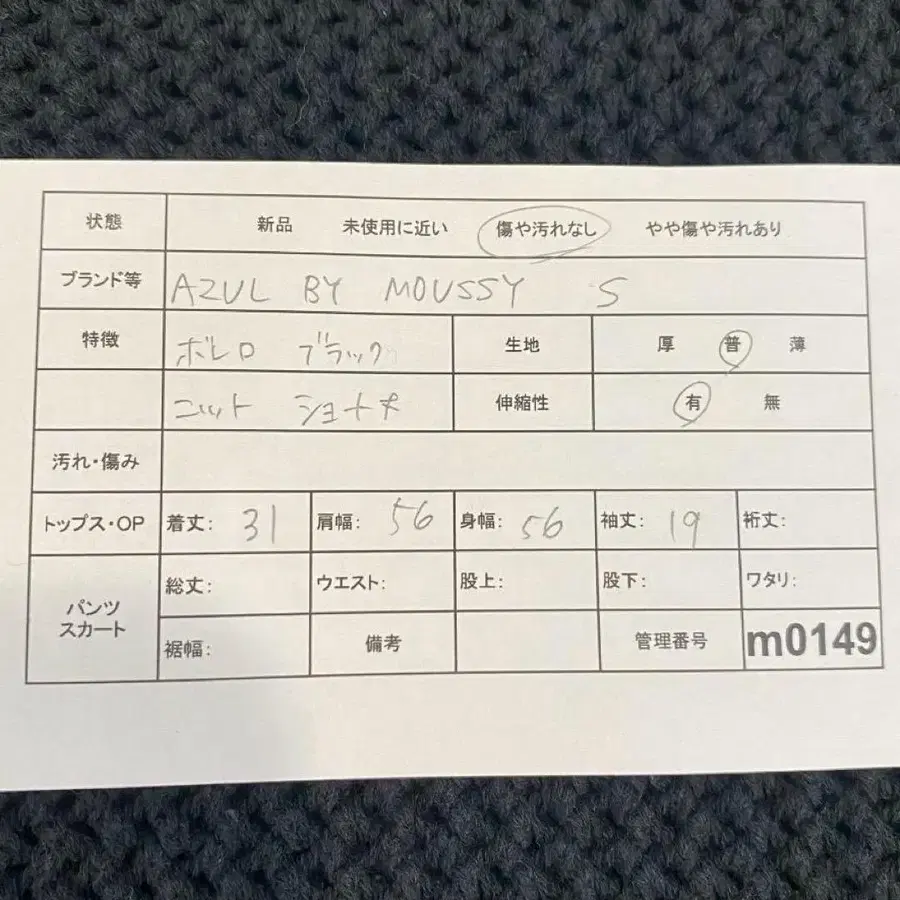 状態 新品 未使用に近い 傷や汚れなし やや傷や汚れあり
ブランド等 AZUL BY MOUSSY S
特徴 ボレロ ブラック 生地 厚 普 薄
ニット ショート丈 伸縮性 有 無
汚れ・傷み
トップス・OP 着丈: 31 肩幅: 56 身幅: 56 袖丈: 19 裄丈:
パンツ スカート 総丈: ウエスト: 股上: 股下: ワタリ:
裾幅: 備考 管理番号 m0149